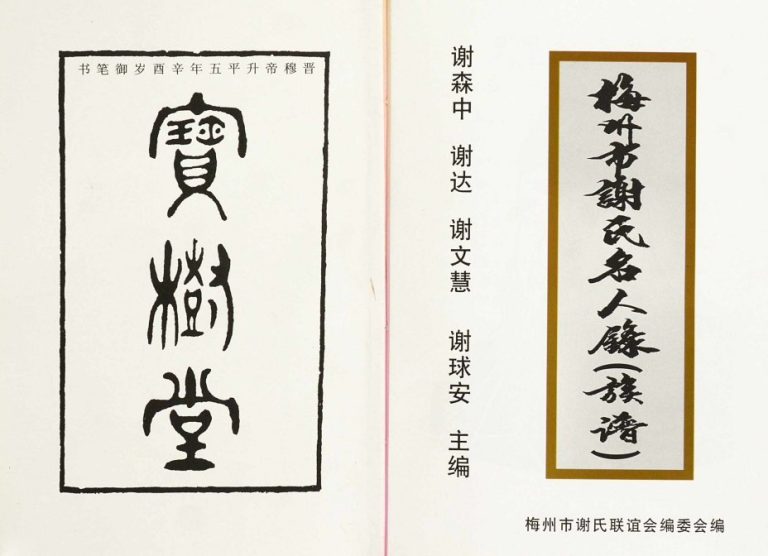 晋穆帝升平五年辛酉岁御笔书
寶樹堂
梅州市謝氏名人錄(族谱)
谢森中 谢达 谢文慧 谢球安 主编
梅州市谢氏联谊会编委会编